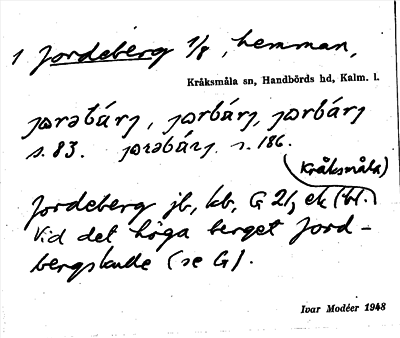 1 Jordeberg 1/8, hemman,
Kråksmåla sn, Handbörds hd, Kalm. l.
s. 83. s. 186.
(Kråksmåla)
Jordeberg jb, kb, G 21, ek (bl.)
Vid det höga berget Jord-
bergskulle (se G).
Ivar Modéer 1948